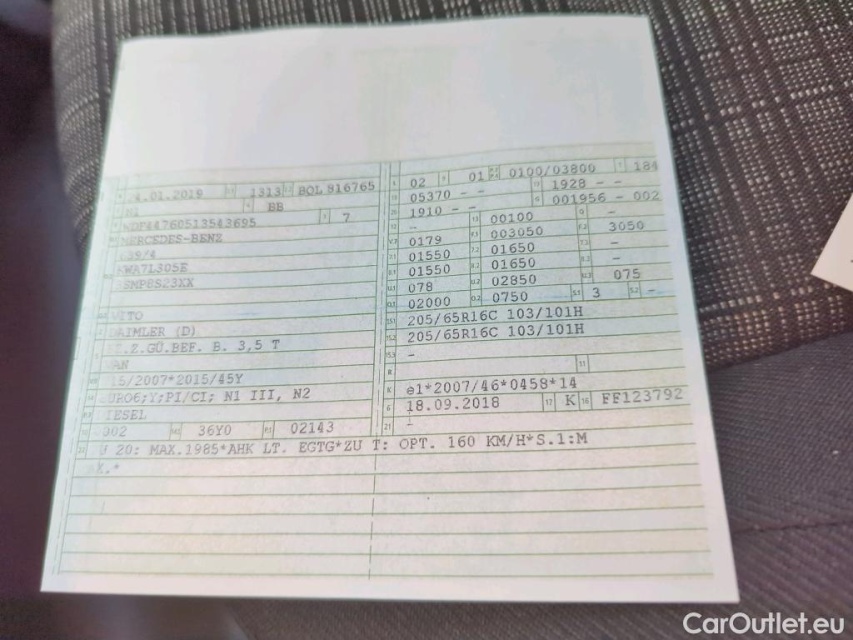 4.01.2019 1313 BOL 816765
N1 BB
WDF44760513543695 7
MERCEDES-BENZ
639/4
KWA7L305E
VITO
DAIMLER (D)
Z.GÜ.BEF. B. 3,5 T
15/2007*2015/45Y
EURO6;Y;PI/CI; N1 III, N2
DIESEL
002 36Y0 02143
U 20: MAX.1985*AHK LT. EGTG*ZU T: OPT. 160 KM/H*S.1:M
X.*
02 01 0100/03800 184
05370 - - 1928 - -
1910 - - 001956 - 002
- 00100 -
0179 003050 3050
01550 01650 -
01550 01650 -
078 02850 075
02000 0750 3 -
205/65R16C 103/101H
205/65R16C 103/101H
-
e1*2007/46*0458*14
18.09.2018 17 K 16 FF123792
21 -
CarOutlet.eu